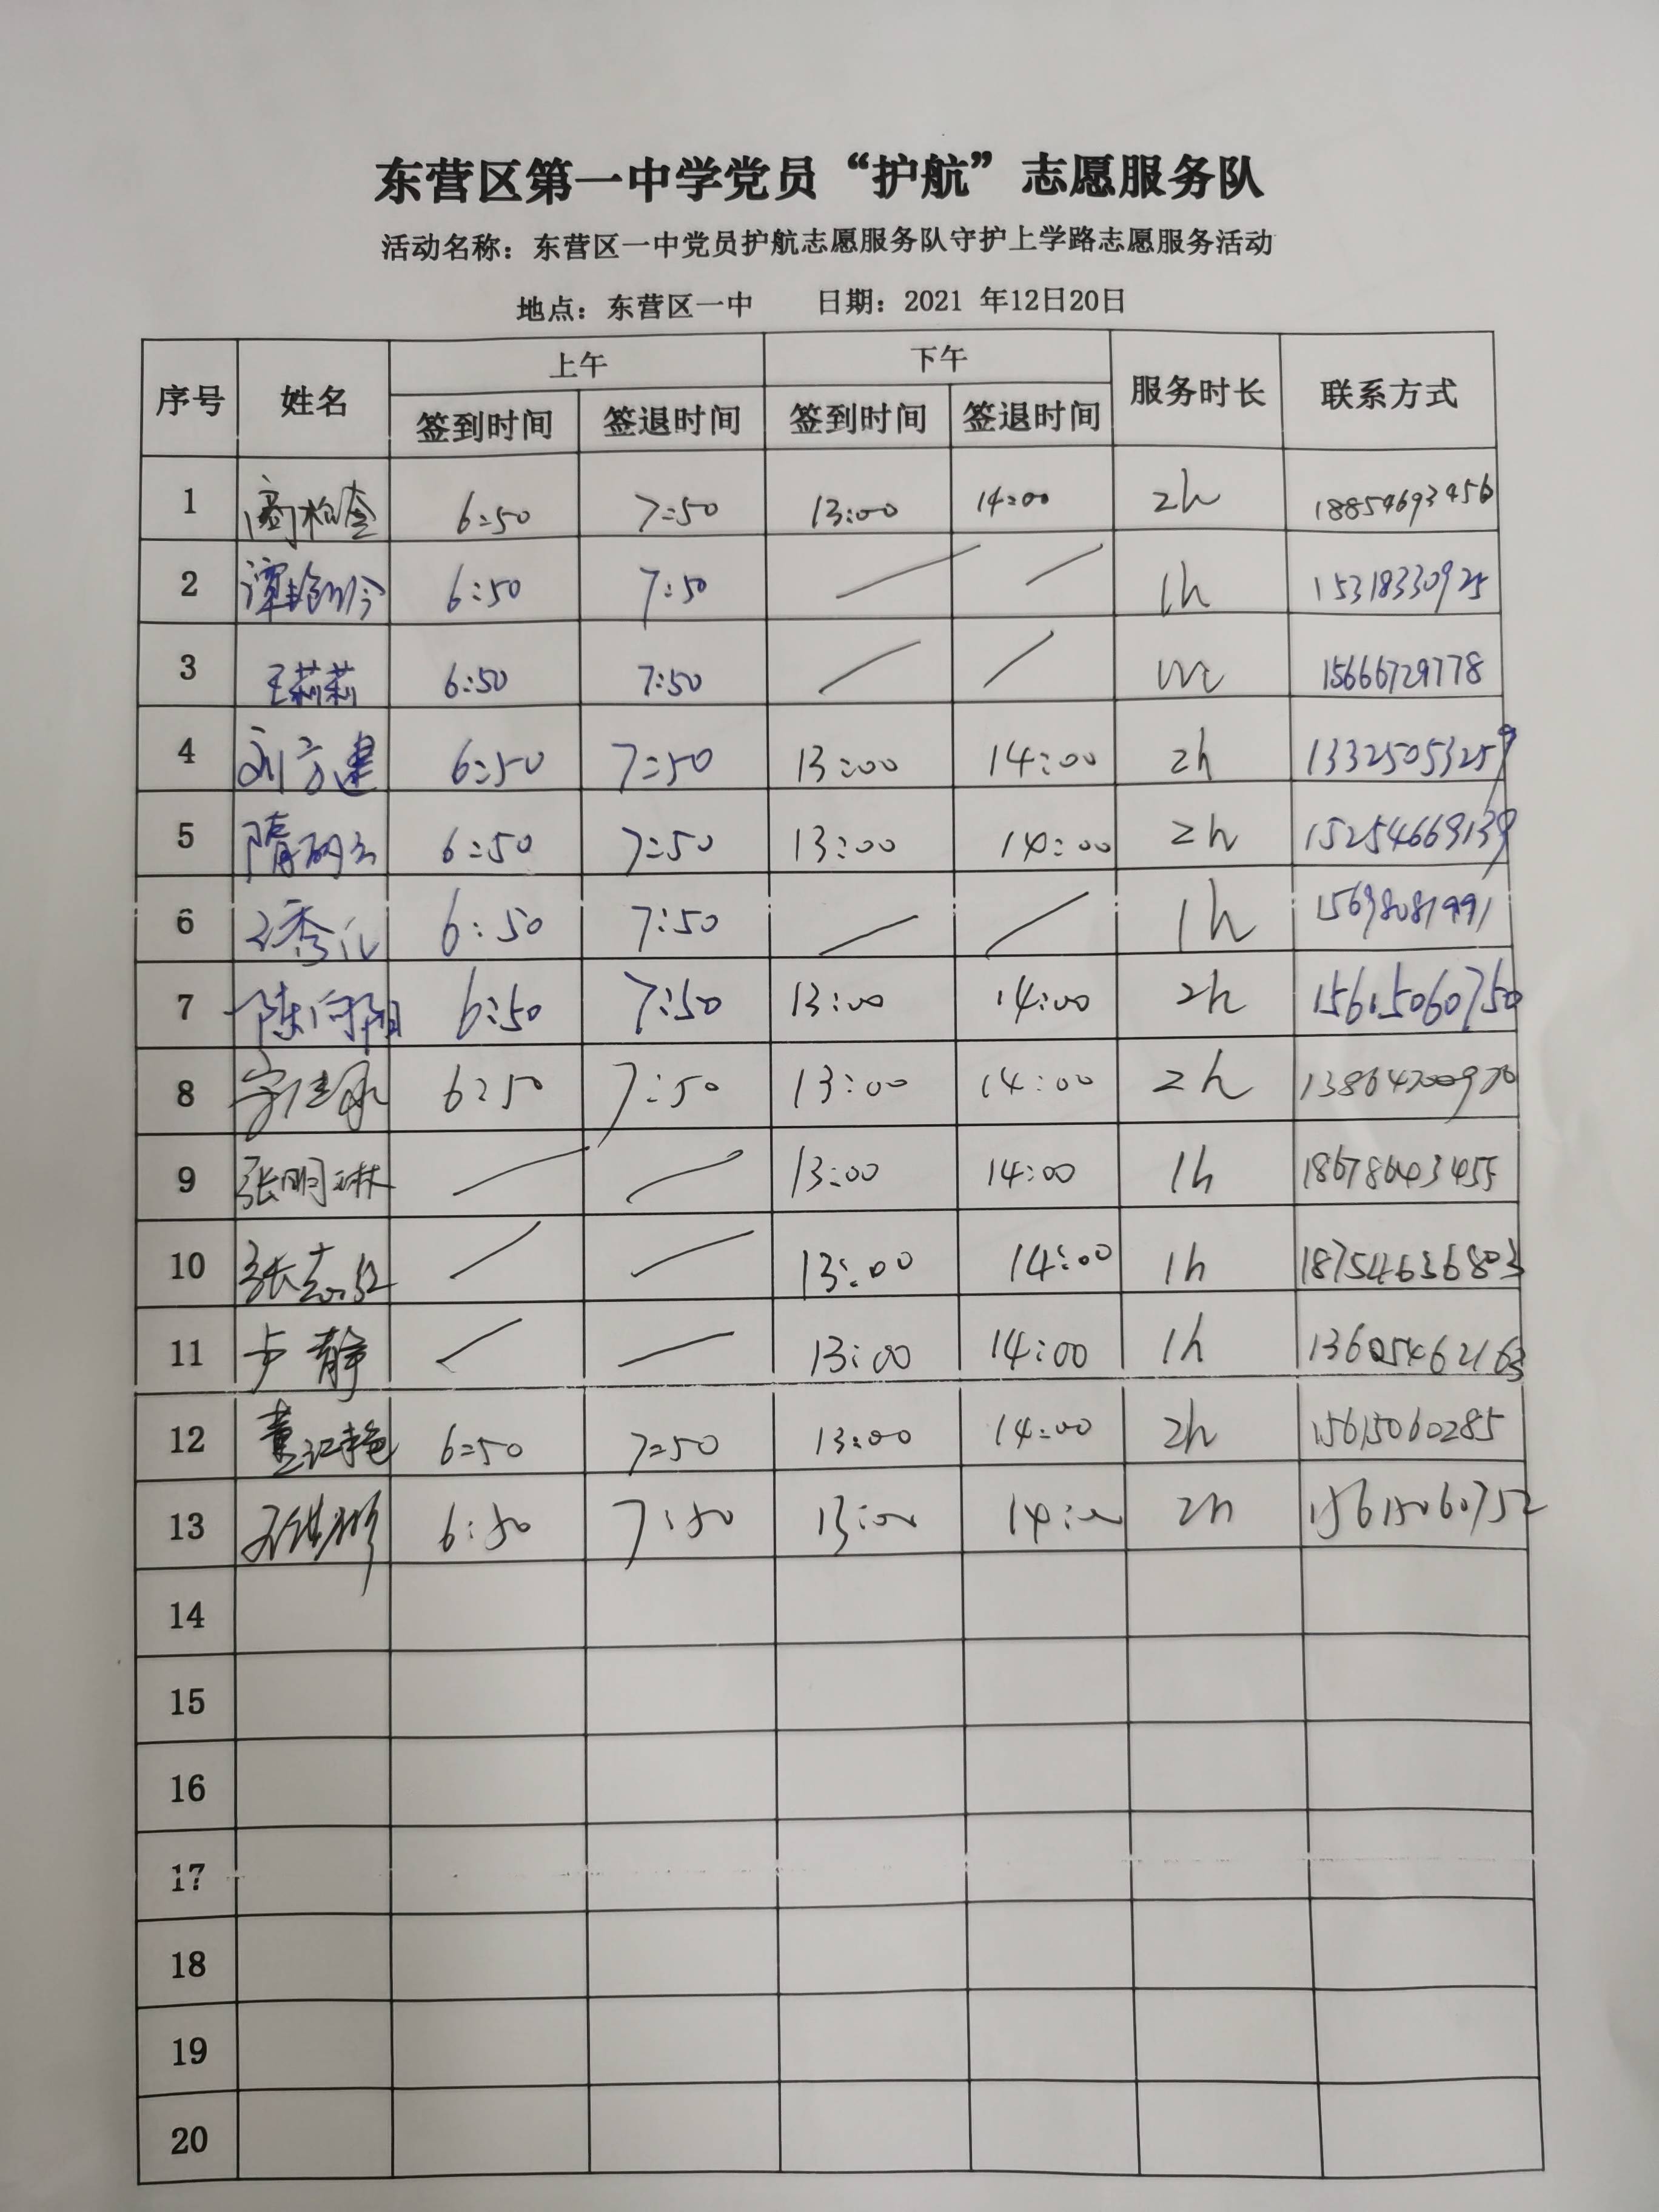 东营区第一中学党员“护航”志愿服务队
活动名称：东营区一中党员护航志愿服务队守护上学路志愿服务活动
地点：东营区一中 日期：2021 年12日20日
序号 姓名 上午 下午 服务时长 联系方式
签到时间 签退时间 签到时间 签退时间
1 6:50 7:50 13:00 14:00 2h 18854693456
2 6:50 7:50 1h 15318330925
3 王莉莉 6:50 7:50 15666729778
4 刘方建 6:50 7:50 13:00 14:00 2h 13325053259
5 6:50 7:50 13:00 14:00 2h 15254669139
6 6:50 7:50 1h 15698081991
7 陈向阳 6:50 7:50 13:00 14:00 2h 15615060750
8 6:50 7:50 13:00 14:00 2h
9 张明琳 13:00 14:00 1h
10 张志红 13:00 14:00 1h 18754636803
11 卢静 13:00 14:00 1h 13605462163
12 董红艳 6:50 7:50 13:00 14:00 2h 15615060285
13 6:50 7:50 13:00 14:00 2h 15615060752
14
15
16
17
18
19
20